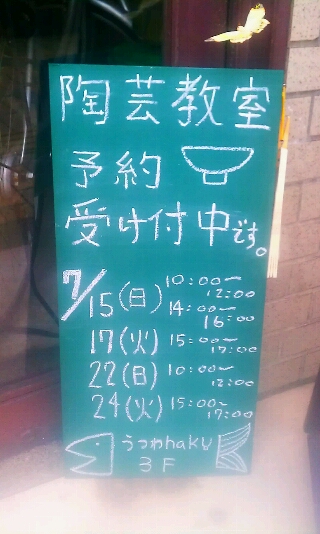 陶芸教室
予約
受け付中です。
7/15(日) 10:00〜12:00
14:00〜16:00
17(火) 15:00〜17:00
22(日) 10:00〜12:00
24(火) 15:00〜17:00
うつわhaku
3F